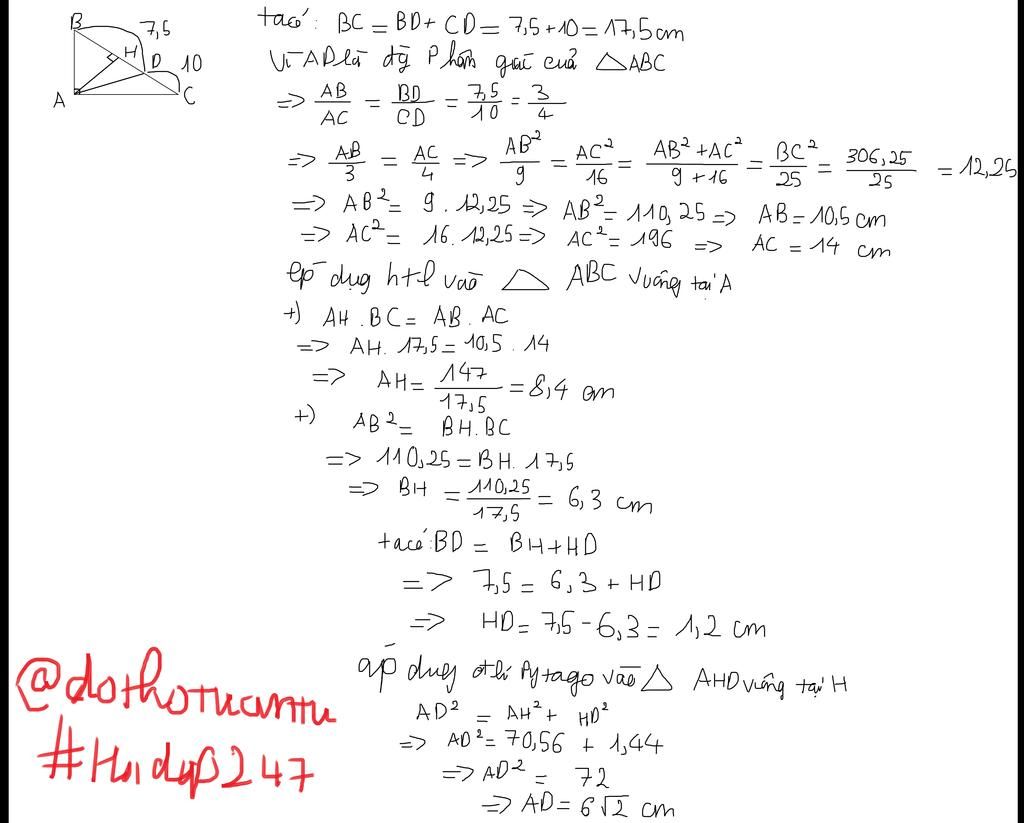 B
7,5
H
D
10
A
C
ta có: BC = BD + CD = 7,5 + 10 = 17,5 cm
Vì AD là đg phân giác của △ABC
=> AB/AC = BD/CD = 7,5/10 = 3/4
=> AB/3 = AC/4 => AB²/9 = AC²/16 = AB² + AC²/9 + 16 = BC²/25 = 306,25/25 = 12,25
=> AB² = 9 . 12,25 => AB² = 110,25 => AB = 10,5 cm
=> AC² = 16 . 12,25 => AC² = 196 => AC = 14 cm
áp dụng htl vào △ ABC vuông tại A
+) AH . BC = AB . AC
=> AH . 17,5 = 10,5 . 14
=> AH = 147/17,5 = 8,4 cm
+) AB² = BH . BC
=> 110,25 = BH . 17,5
=> BH = 110,25/17,5 = 6,3 cm
ta có: BD = BH + HD
=> 7,5 = 6,3 + HD
=> HD = 7,5 - 6,3 = 1,2 cm
áp dụng đlí Pytago vào △ AHD vuông tại H
AD² = AH² + HD²
=> AD² = 70,56 + 1,44
=> AD² = 72
=> AD = 6√2 cm
@dothotuantu
#Hoidap247